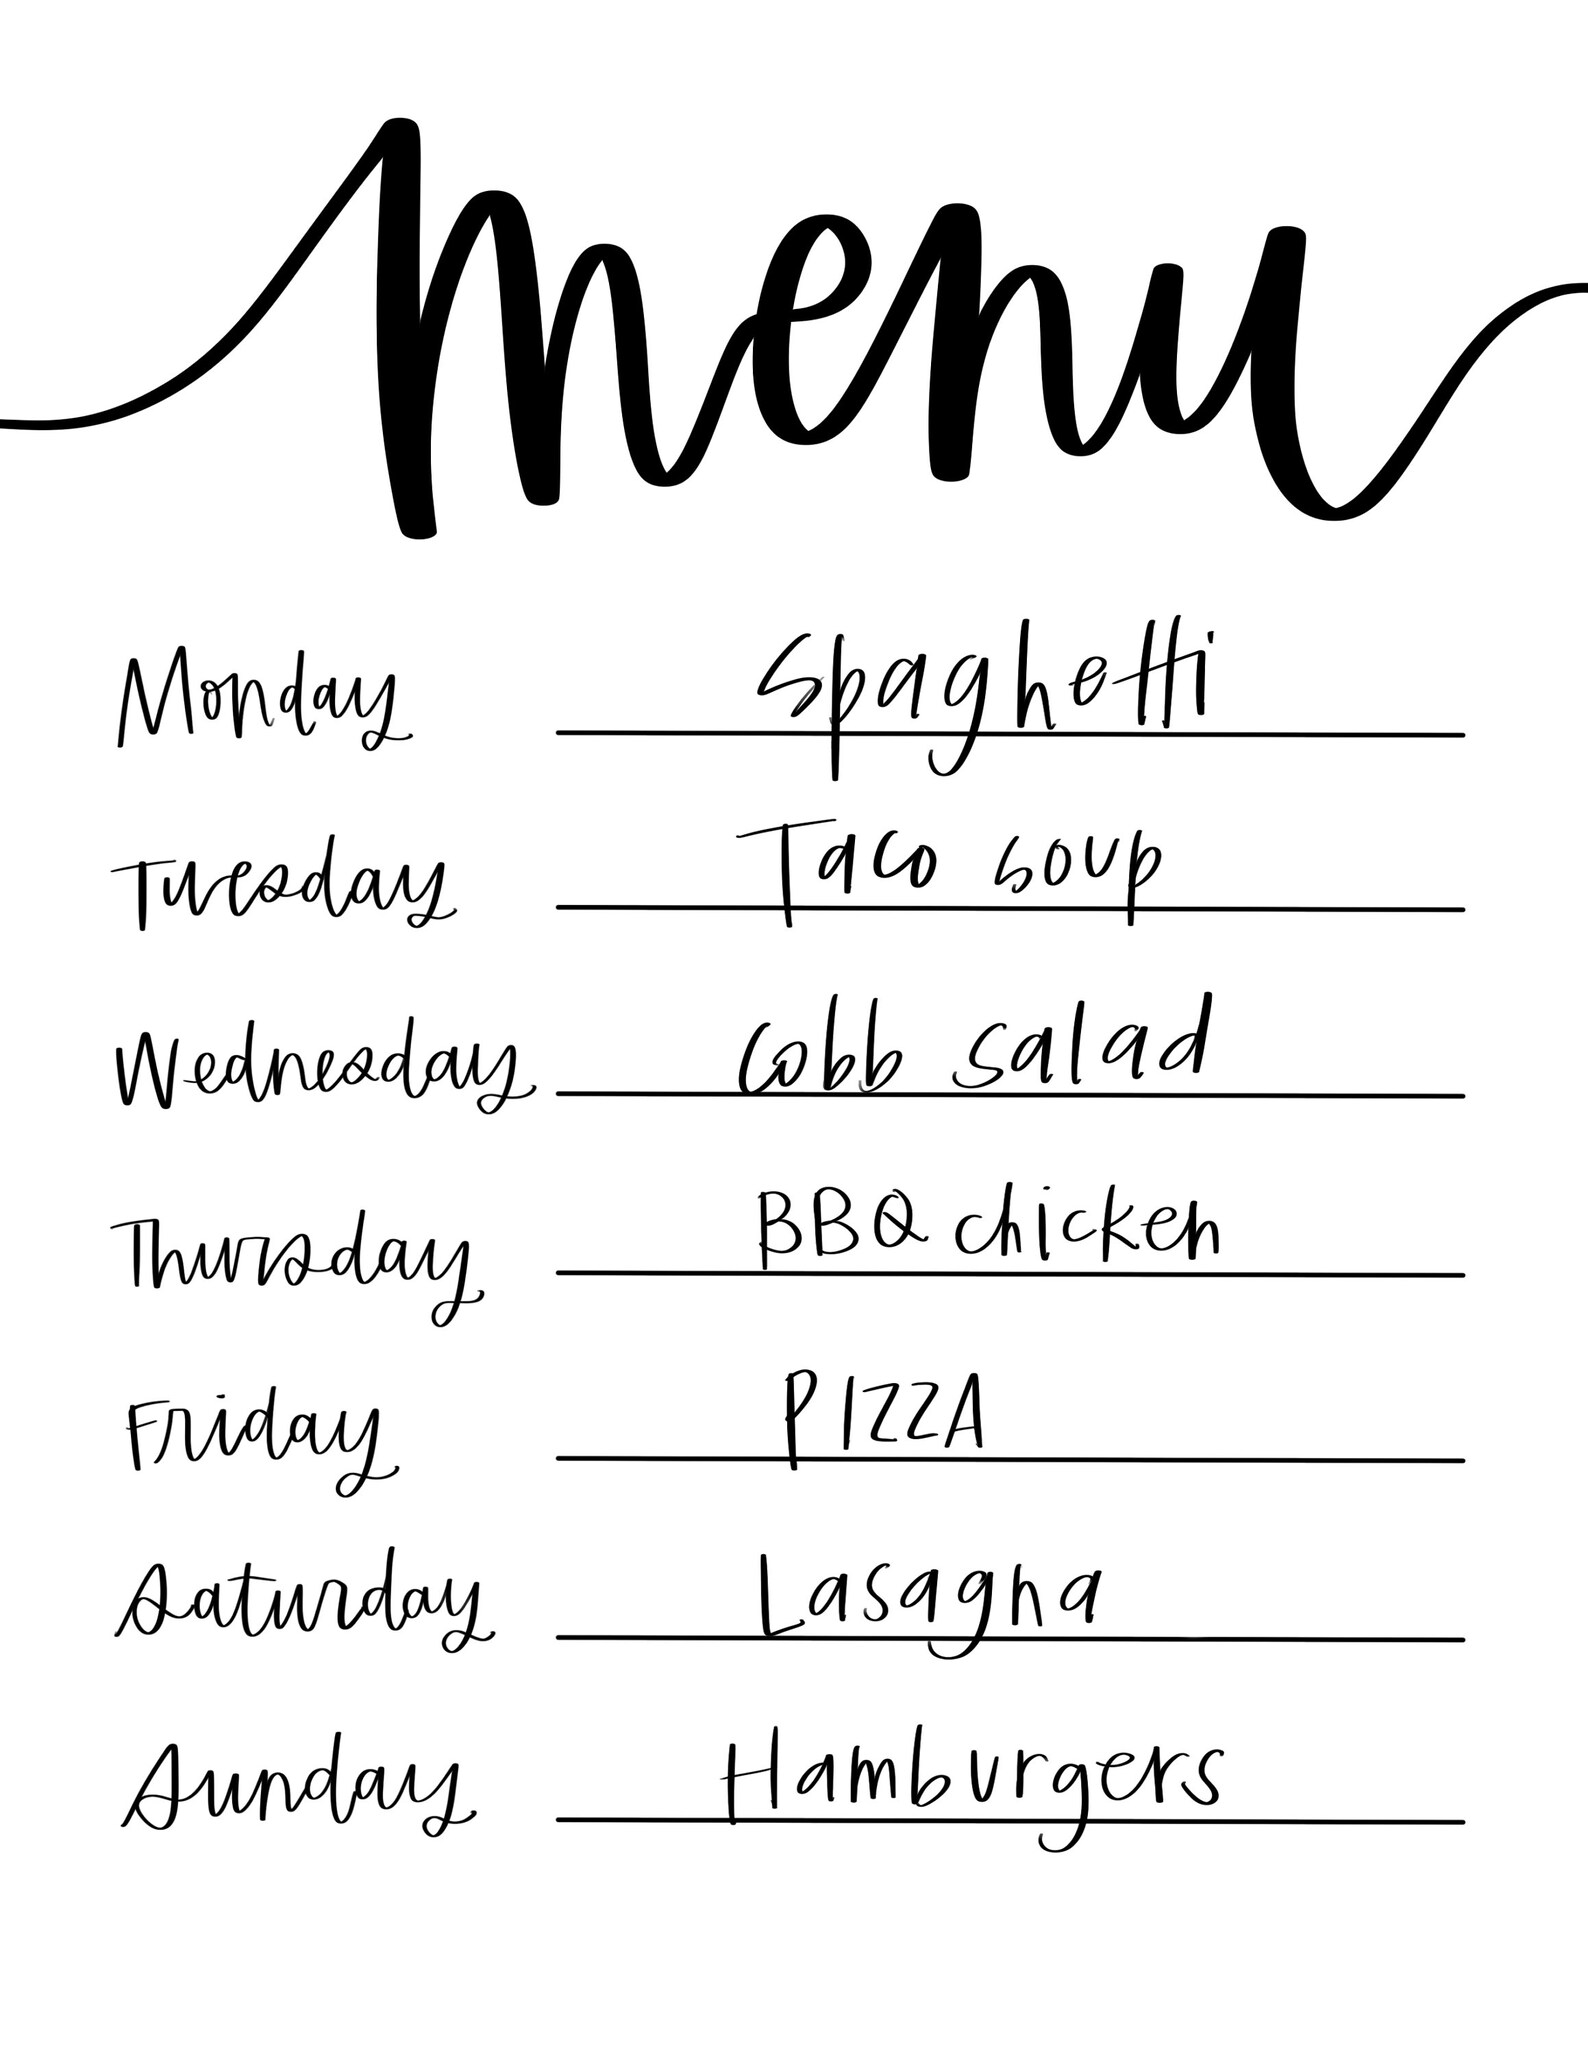 Menu
Monday Spaghetti
Tuesday Taco soup
Wednesday Cobb salad
Thursday BBQ chicken
Friday PIZZA
Saturday Lasagna
Sunday Hamburgers